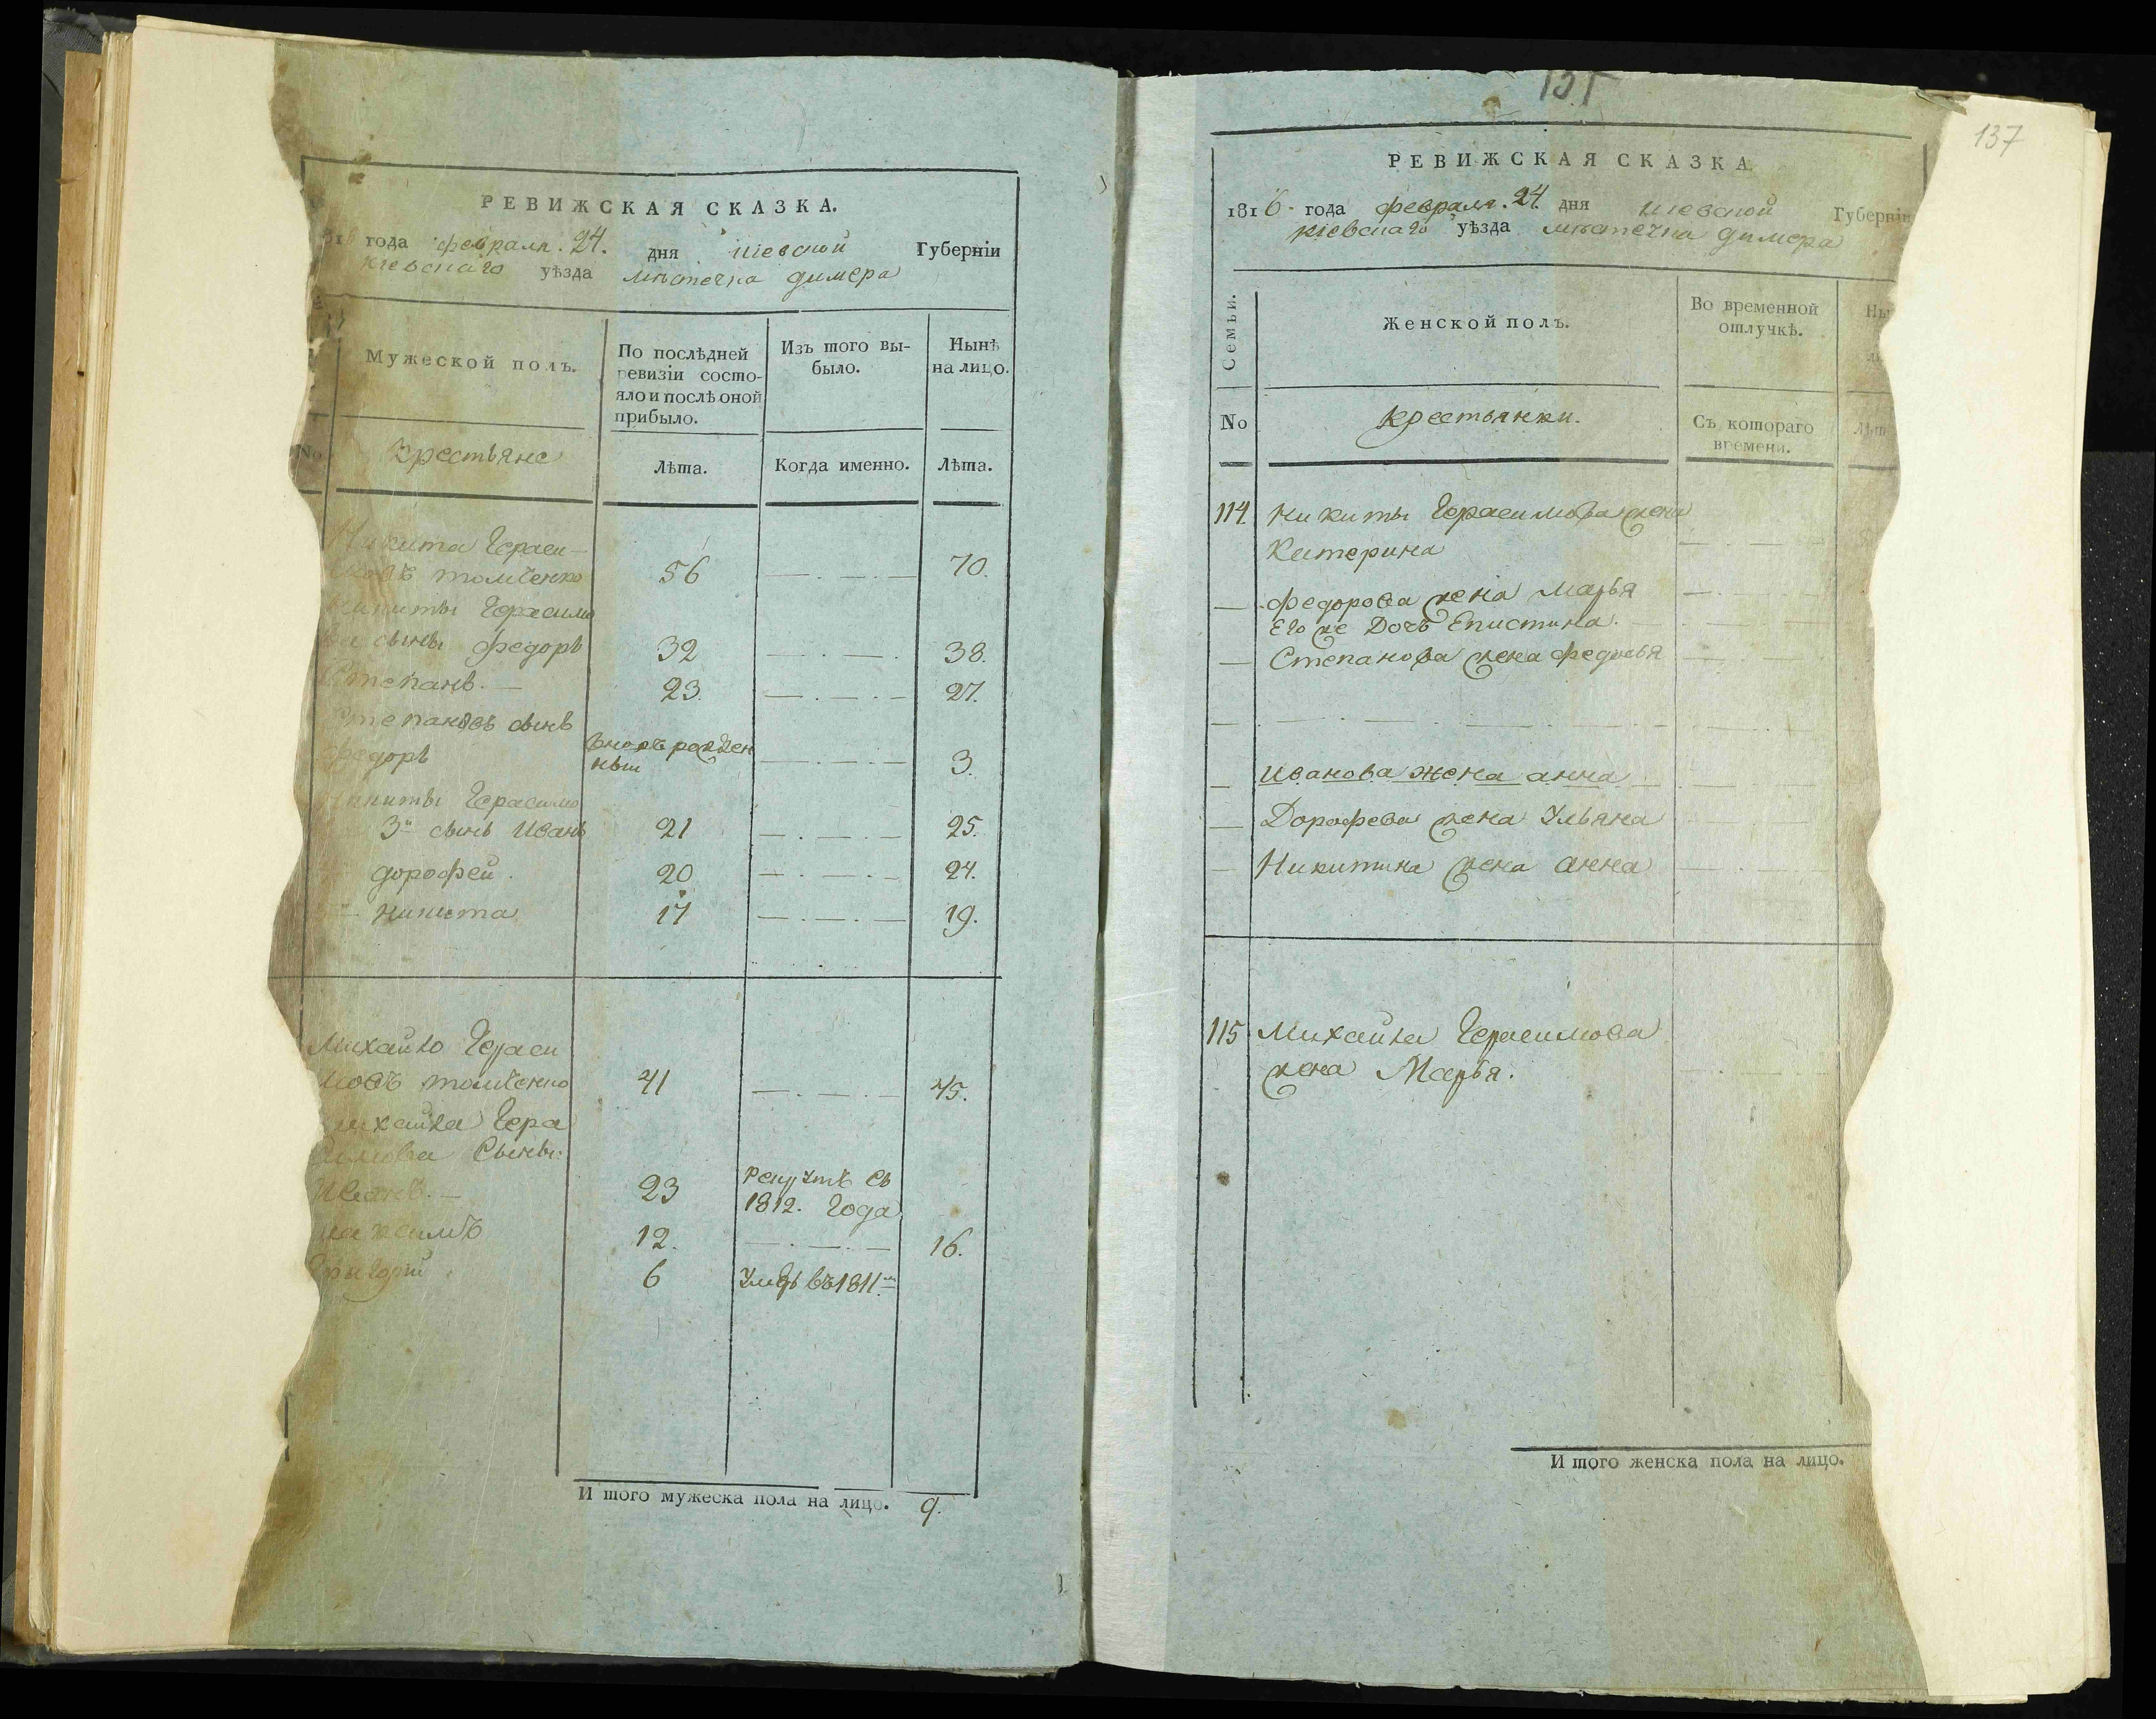 РЕВИЖСКАЯ СКАЗКА.
года февраля. 24. дня кіевской Губерніи
кіевскаго уѣзда мѣстечка димера
Мужеской полъ.
По послѣдней ревизіи состояло и послѣ оной прибыло.
Изъ того выбыло.
Нынѣ на лицо.
No
Крестьяне
Лѣта.
Когда именно.
Лѣта.
Никита Гераси-
мовъ томченко 56 70.
Никиты Герасимо
ва сыны Федоръ 32 38.
Степанъ. 23. 27.
Степановъ сынъ
Федоръ вновь рожден
ный 3.
Никиты Герасимо
3й сынъ Иванъ 21 25.
дорофей. 20 24.
никита 17 19.
Михайло Гераси
мовъ томченко 41 45.
Михайла Гера
симова Сыны:
Иванъ. 23 рекрутъ съ
1812. года
максимъ 12. 16.
Григорій 6 умръ въ 1811м
И того мужеска пола на лицо. 9.
137
РЕВИЖСКАЯ СКАЗКА
1816. года февраля. 24. дня кіевской Губерніи
кіевскаго уѣзда мѣстечка димера
Семьи.
Женской полъ.
Во временной отлучкѣ.
No
Крестьянки.
Съ котораго времени.
114 Никиты Герасимова жена
Катерина
Федорова жена Марья
Его же Дочь Епистина.
Степанова жена федосья
Иванова жена анна
Дорофева жена Ульяна
Никитина жена анна
115 Михайла Герасимова
жена Марья.
И того женска пола на лицо.